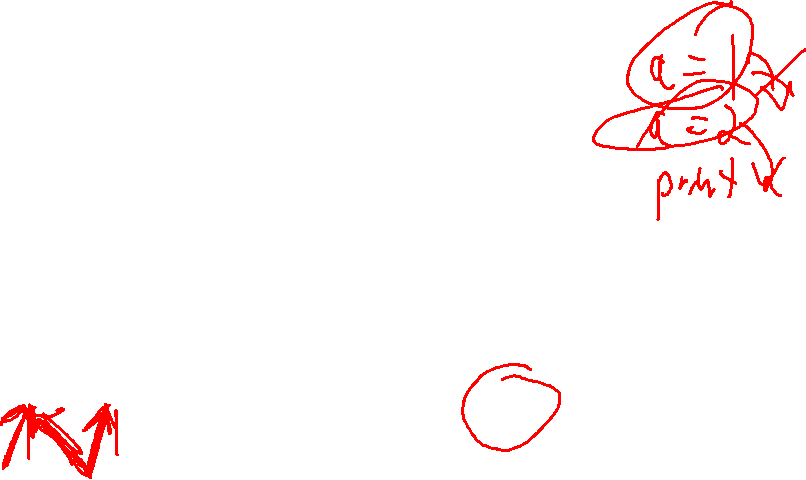 a = 1
a = 2
print